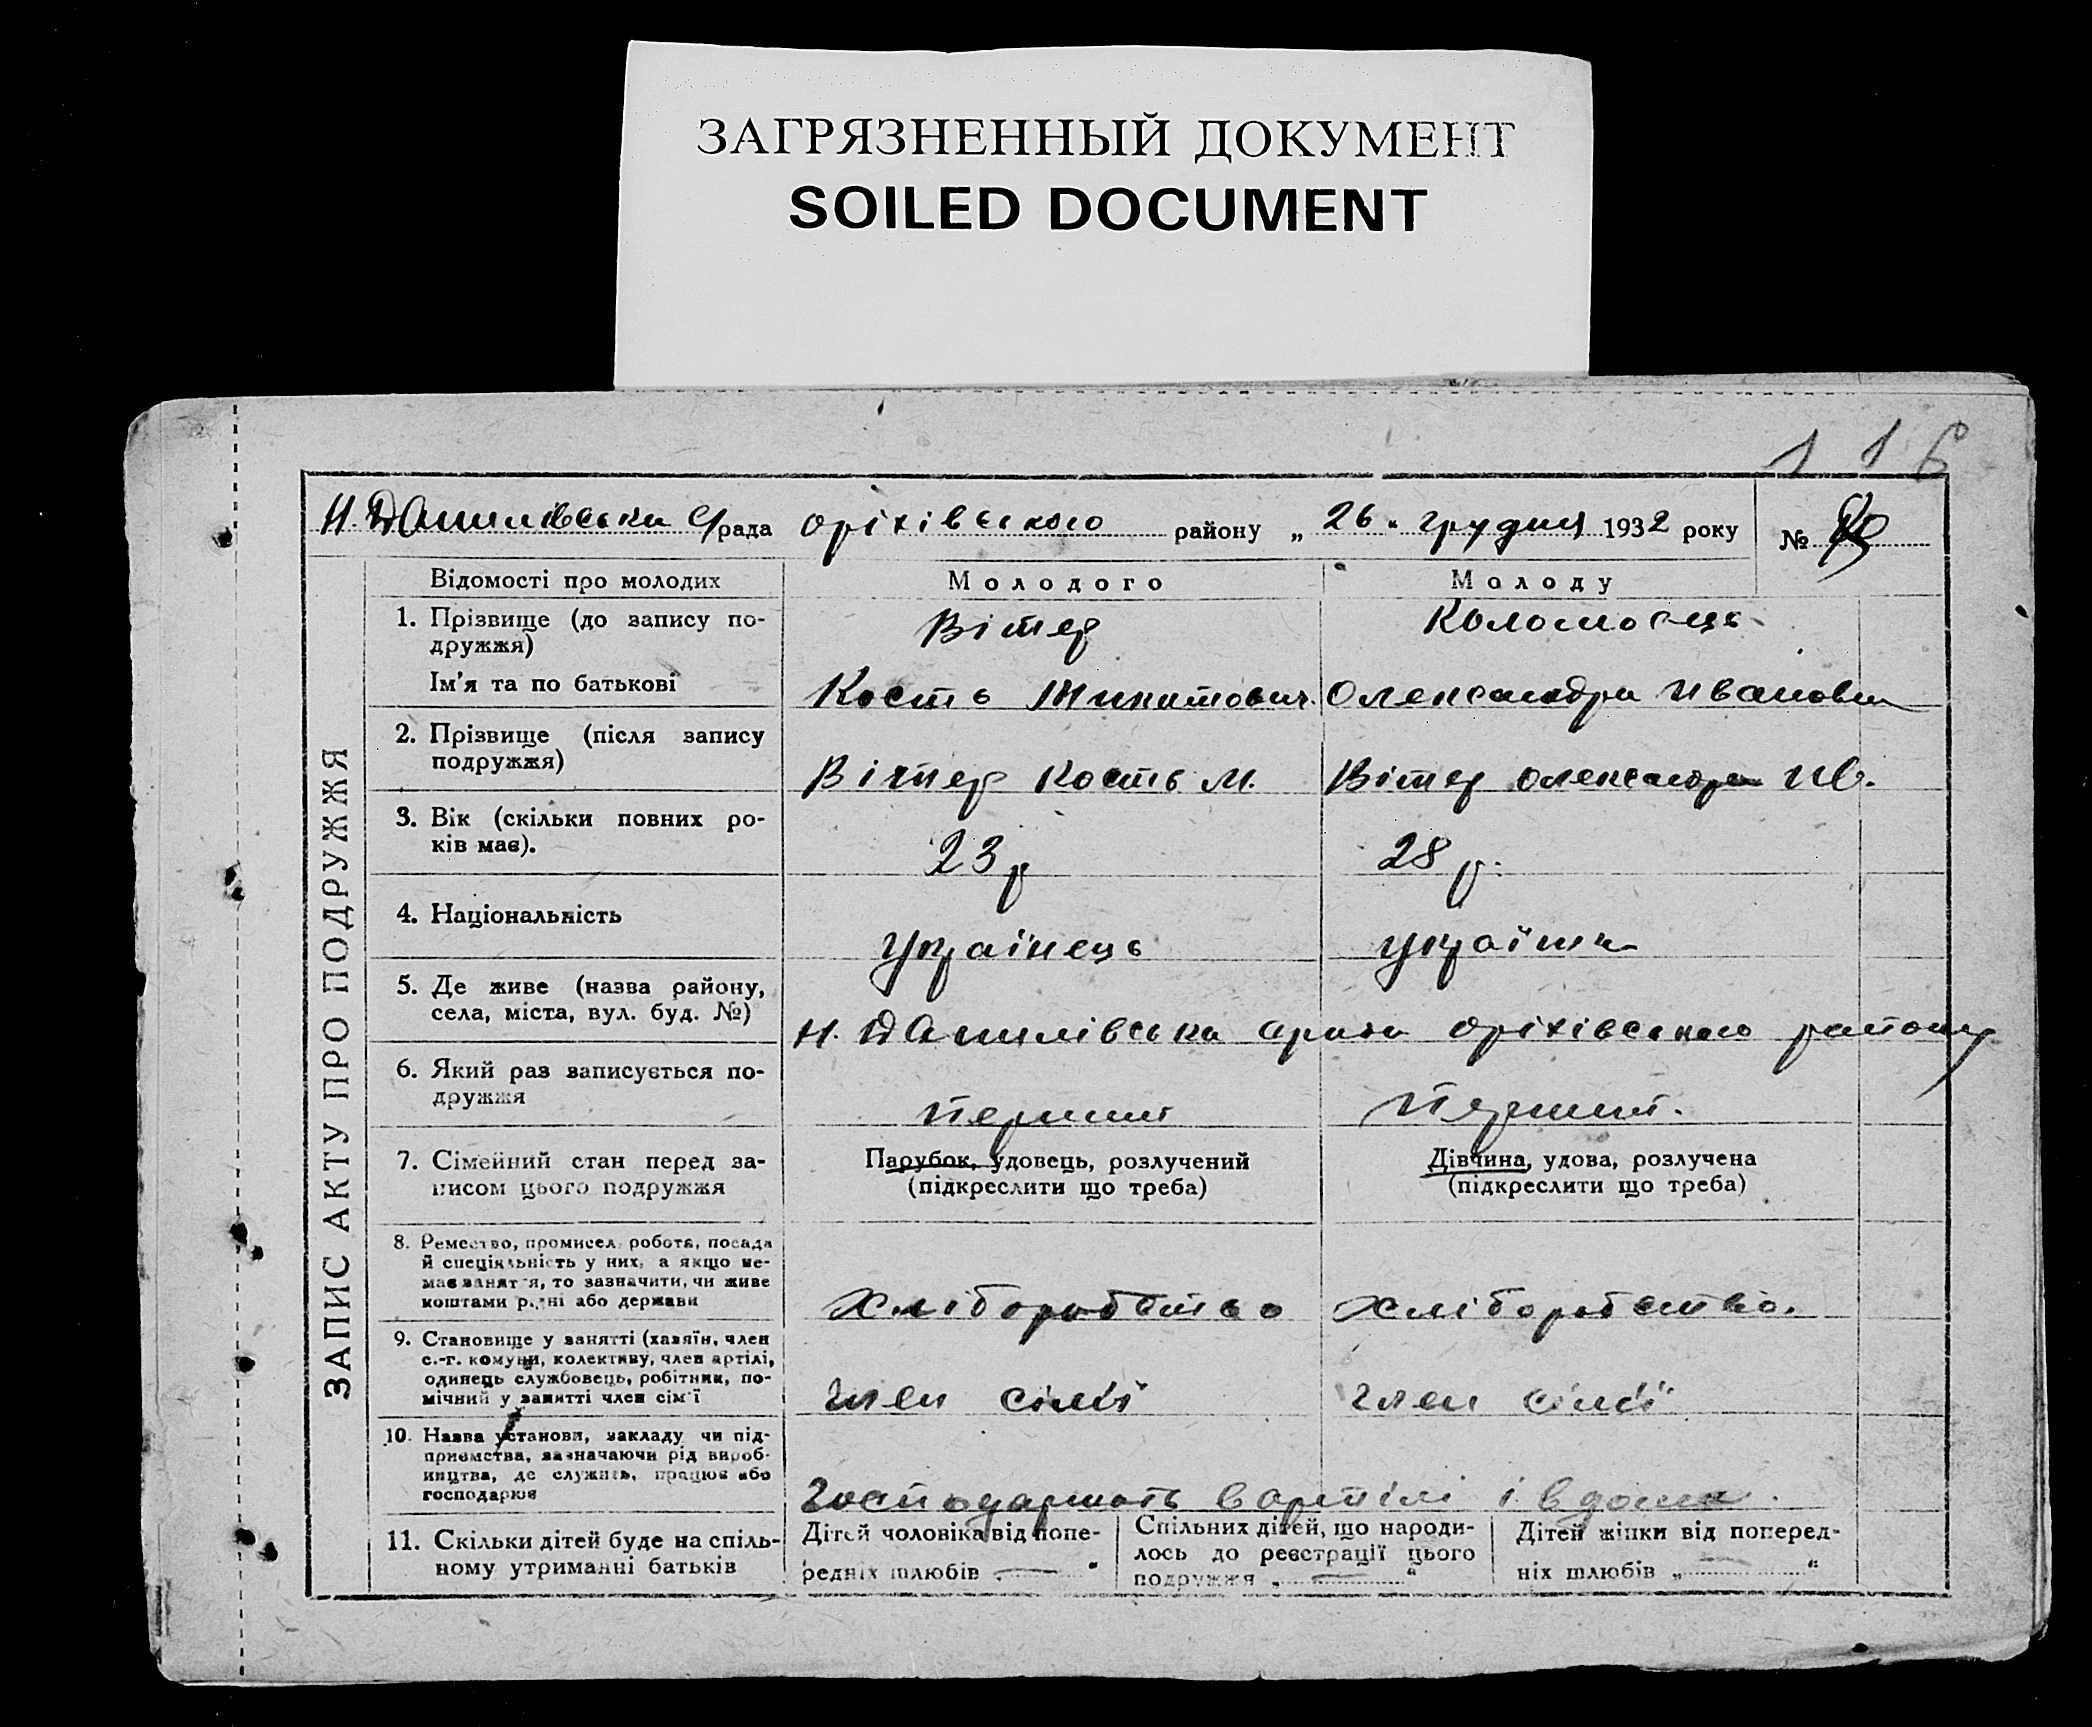 ЗАГРЯЗНЕННЫЙ ДОКУМЕНТ
SOILED DOCUMENT
116
Н. Данилівська с/рада Оріхівського району „ 26 " грудня 1932 року №
ЗАПИС АКТУ ПРО ПОДРУЖЖЯ
Відомості про молодих Молодого Молоду
1. Прізвище (до запису по- Вітер Коломоєць
дружжя)
Ім'я та по батькові Кость Микитович Олександра Івановна
2. Прізвище (після запису
подружжя) Вітер Кость М. Вітер Олександра Ив.
3. Вік (скільки повних ро-
ків має). 23 р 28 р.
4. Національність українець українка
5. Де живе (назва району,
села, міста, вул. буд. №) Н. Данилівська Оріхівського району
6. Який раз записується по-
дружжя перший перший.
7. Сімейний стан перед за- Парубок, удовець, розлучений Дівчина, удова, розлучена
писом цього подружжя (підкреслити що треба) (підкреслити що треба)
8. Ремество, промисел, робота, посада
й спеціяльність у них, а якщо не-
має заняття, то зазначити, чи живе
коштами рідні або держави Хліборобство Хліборобство.
9. Становище у занятті (хазяїн, член
с.-г. комуни, колективу, член артілі,
одинець службовець, робітник, по-
мічний у занятті член сім'ї член сімї член сімї
10. Назва установи, закладу чи під-
приємства, зазначаючи рід вироб-
ництва, де служить, працює або
господарює Господарюють в артілі і вдома.
11. Скільки дітей буде на спіль- Дітей чоловіка від попе- Спільних дітей, що народи- Дітей жінки від поперед-
ному утриманні батьків редніх шлюбів — " лось до реєстрації цього ніх шлюбів „ — "
подружжя „ — "